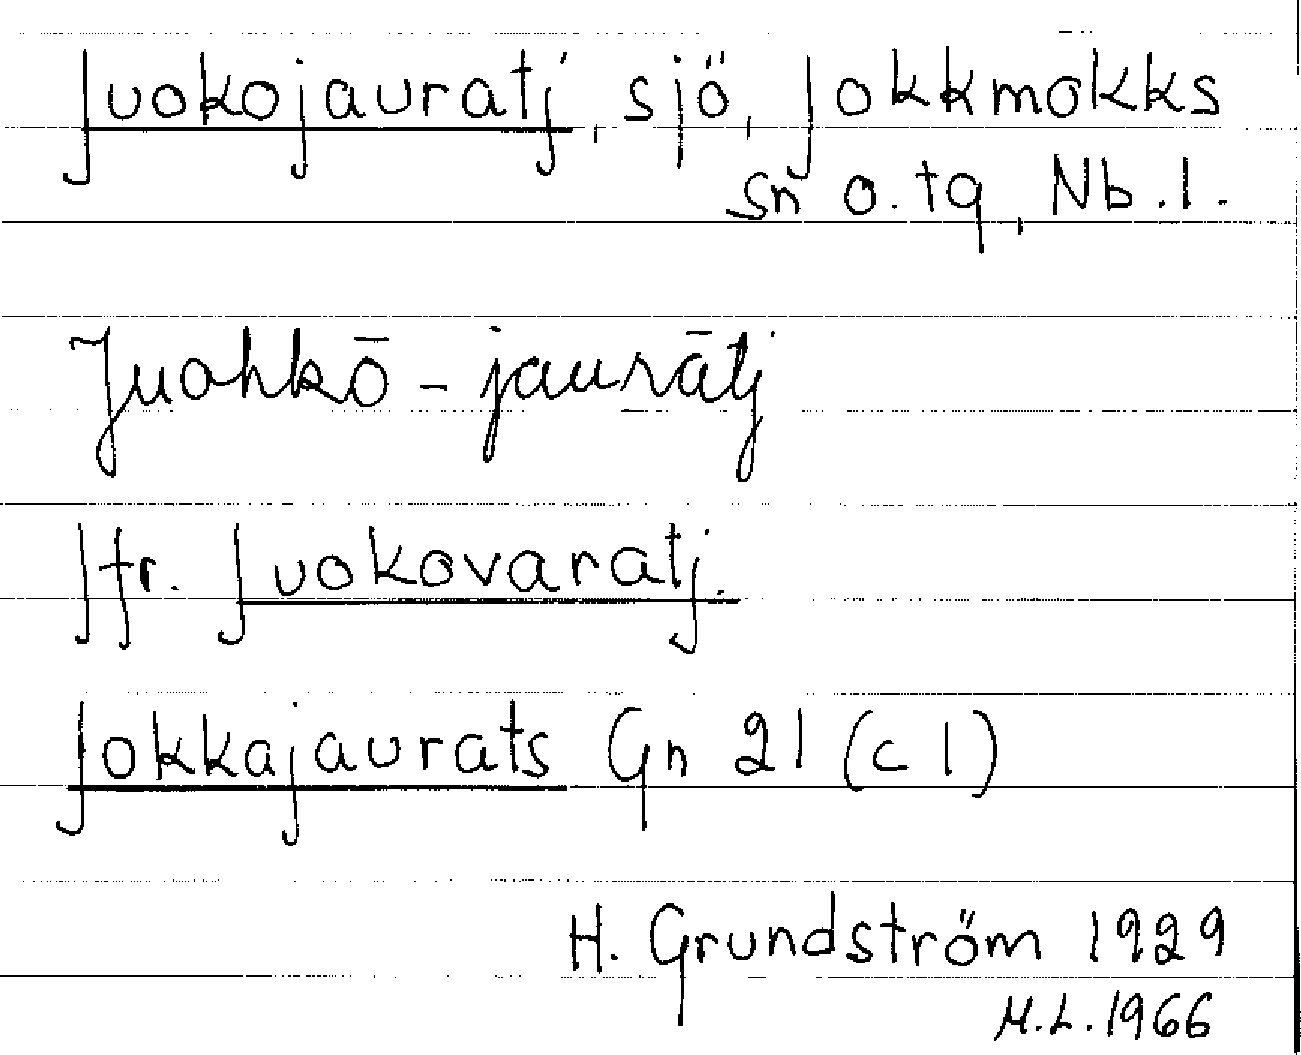 Juokojauratj, sjö, Jokkmokks
sn o. tg, Nb. l.
Juohkō - jaurātj
Jfr. Juokovaratj.
Jokkajaurats Gn 21 (c 1)
H. Grundström 1929
M.L. 1966